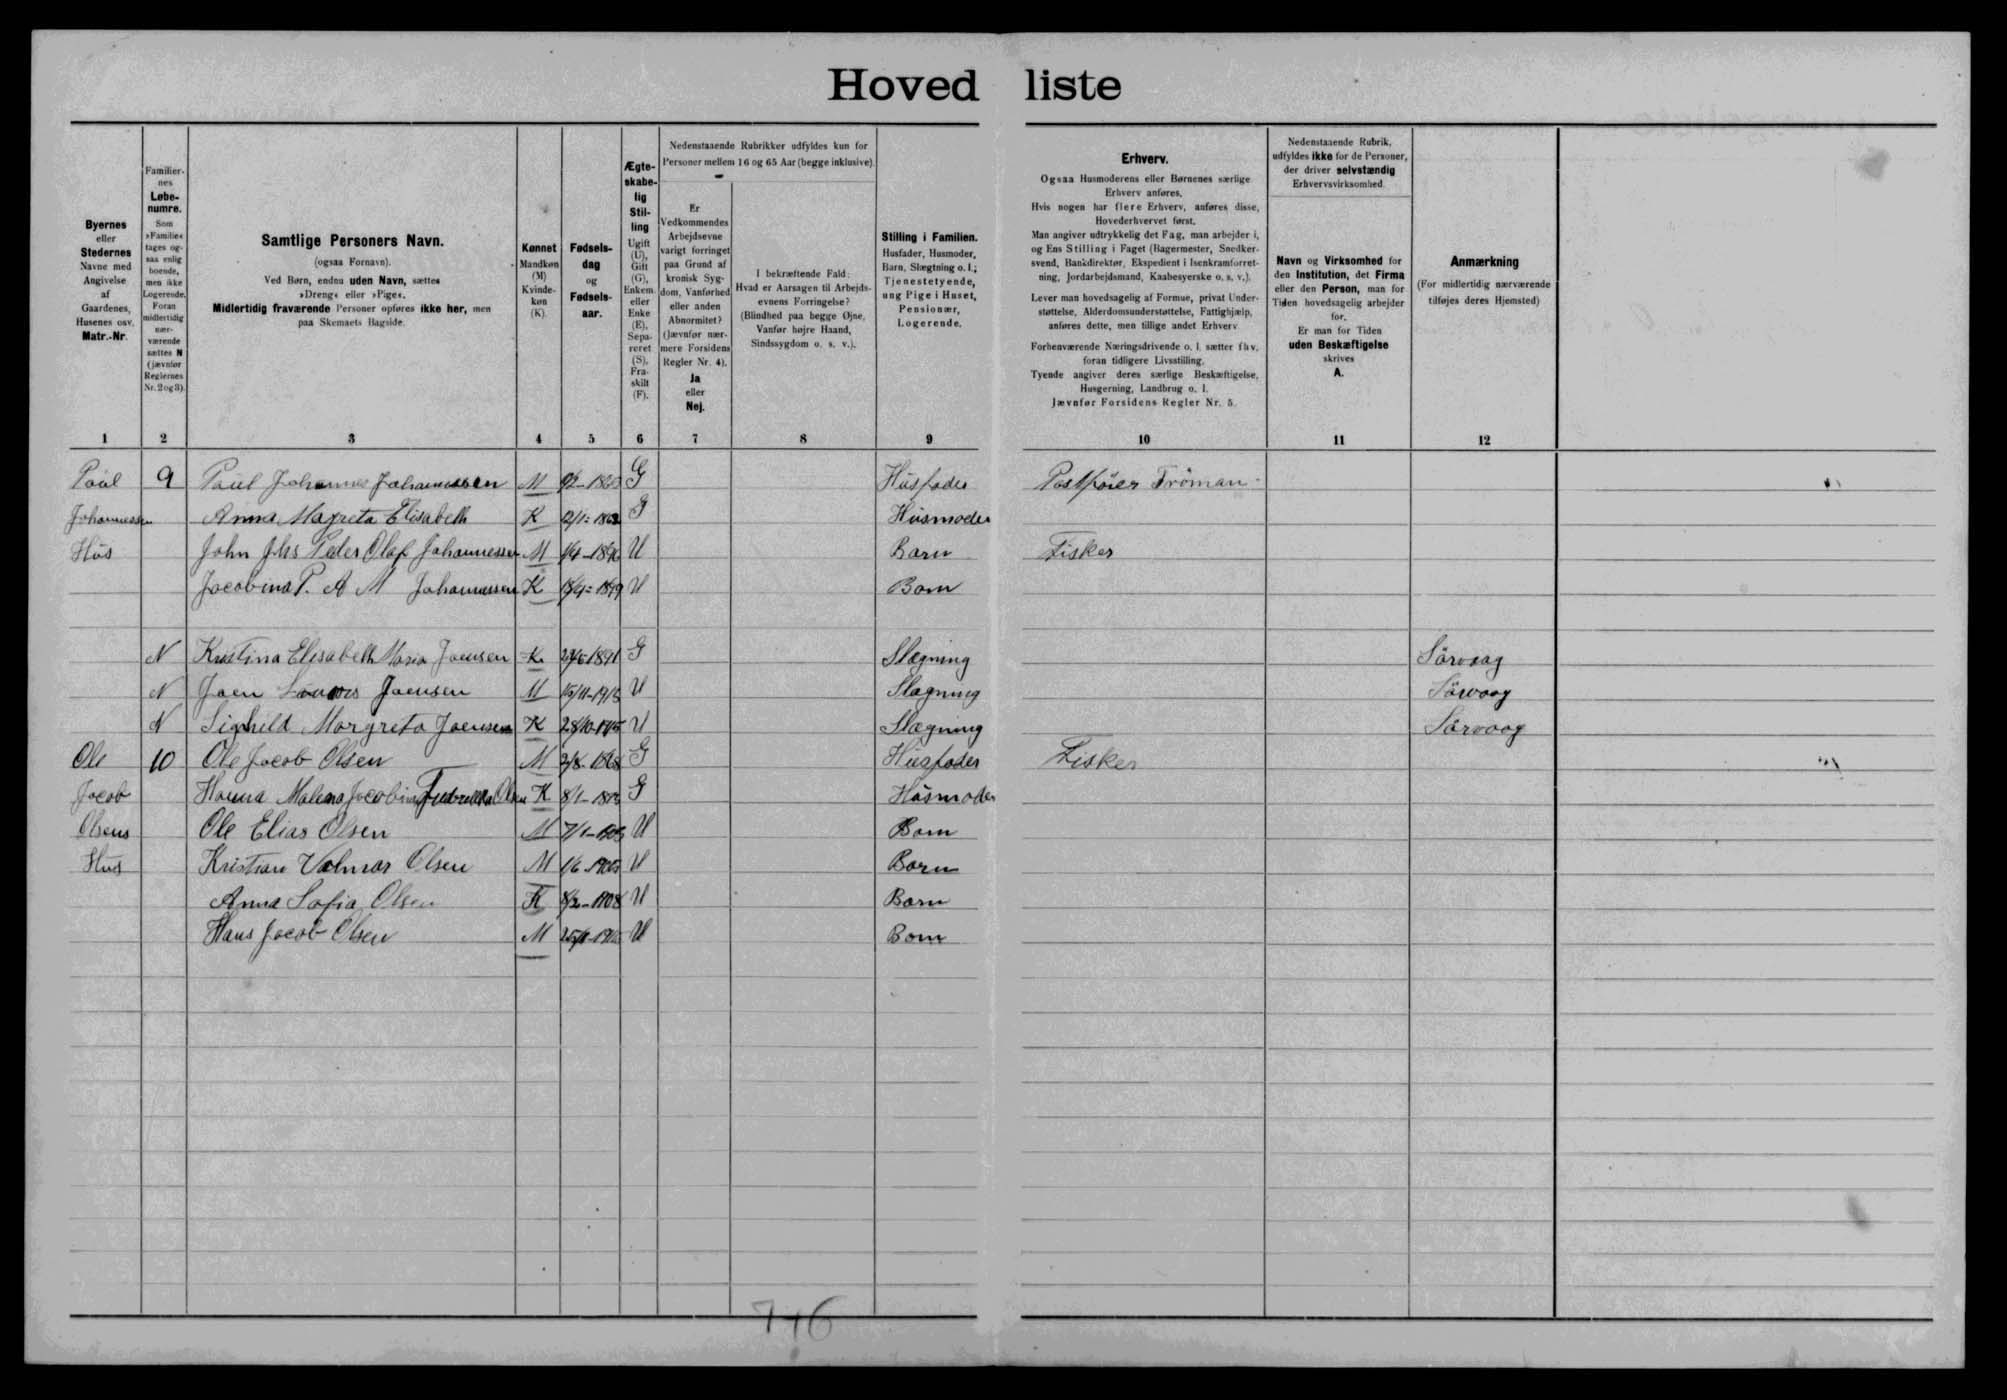 Hoved liste
Byernes
eller
Stedernes
Navne med
Angivelse
af
Gaardenes,
Husenes osv.
Matr.-Nr.
1
Familier-
nes
Løbe-
numre.
Som
»Familie«
tages og-
saa enlig
boende,
men ikke
Logerende.
Foran
midlertidig
nær-
værende
sættes N
(jævnfør
Reglernes
Nr. 2 og 3).
2
Samtlige Personers Navn.
(ogsaa Fornavn).
Ved Børn, endnu uden Navn, sættes
»Dreng« eller »Pige«.
Midlertidig fraværende Personer opføres ikke her, men
paa Skemaets Bagside.
3
Kønnet
Mandkøn
(M)
Kvinde-
køn
(K)
4
Fødsels-
dag
og
Fødsels-
aar.
5
Ægte-
skabe-
lig
Stil-
ling
Ugift
(U),
Gift
(G),
Enkem.
eller
Enke
(E),
Sepa-
reret
(S),
Fra-
skilt
(F).
6
Nedenstaaende Rubrikker udfyldes kun for
Personer mellem 16 og 65 Aar (begge inklusive).
Er
Vedkommendes
Arbejdsevne
varigt forringet
paa Grund af
kronisk Syg-
dom, Vanførhed
eller anden
Abnormitet?
(Jævnfør nær-
mere Forsidens
Regler Nr. 4).
Ja
eller
Nej.
7
I bekræftende Fald:
Hvad er Aarsagen til Arbejds-
evnens Forringelse?
(Blindhed paa begge Øjne,
Vanfør højre Haand,
Sindssygdom o. s. v.).
8
Stilling i Familien.
Husfader, Husmoder,
Barn, Slægtning o. l.;
Tjenestetyende,
ung Pige i Huset,
Pensionær,
Logerende.
9
Erhverv.
Ogsaa Husmoderens eller Børnenes særlige
Erhverv anføres.
Hvis nogen har flere Erhverv, anføres disse,
Hovederhvervet først.
Man angiver udtrykkelig det Fag, man arbejder i,
og Ens Stilling i Faget (Bagermester, Snedker-
svend, Bankdirektør, Ekspedient i Isenkramforret-
ning, Jordarbejdsmand, Kaabesyerske o. s. v.).
Lever man hovedsagelig af Formue, privat Under-
støttelse, Alderdomsunderstøttelse, Fattighjælp,
anføres dette, men tillige andet Erhverv
Forhenværende Næringsdrivende o. l. sætter fhv.
foran tidligere Livsstilling.
Tyende angiver deres særlige Beskæftigelse,
Husgerning, Landbrug o. l.
Jævnfør Forsidens Regler Nr. 5.
10
Nedenstaaende Rubrik,
udfyldes ikke for de Personer,
der driver selvstændig
Erhvervsvirksomhed.
Navn og Virksomhed for
den Institution, det Firma
eller den Person, man for
Tiden hovedsagelig arbejder
for.
Er man for Tiden
uden Beskæftigelse
skrives
A.
11
Anmærkning
(For midlertidig nærværende
tilføjes deres Hjemsted)
12
Poul 9 Poul Johannes Johannessen M G Husfader
Johannessen Anna Magreta Elisabeth K G Husmoder
Hus John Jhs Peder Olaf Johannessen M 1/4-1896 U Barn Fisker
Jacobina P. A M Johannessen K U Barn
N Kristina Elisabeth Maria Joensen K G Slægning Sörvaag
N Joen Joensen M U Slægning Sörvaag
N Sighild Margreta Joensen K U Slægning Sörvaag
Ole 10 Ole Jacob Olsen M G Husfader Fisker
Jacob Hanna Malena Jacobina Olsen K G Husmoder
Olsens Ole Elias Olsen M U Barn
Hus Kristian Valmar Olsen M U Barn
Anna Sofia Olsen K U Barn
Hans Jacob Olsen M U Barn